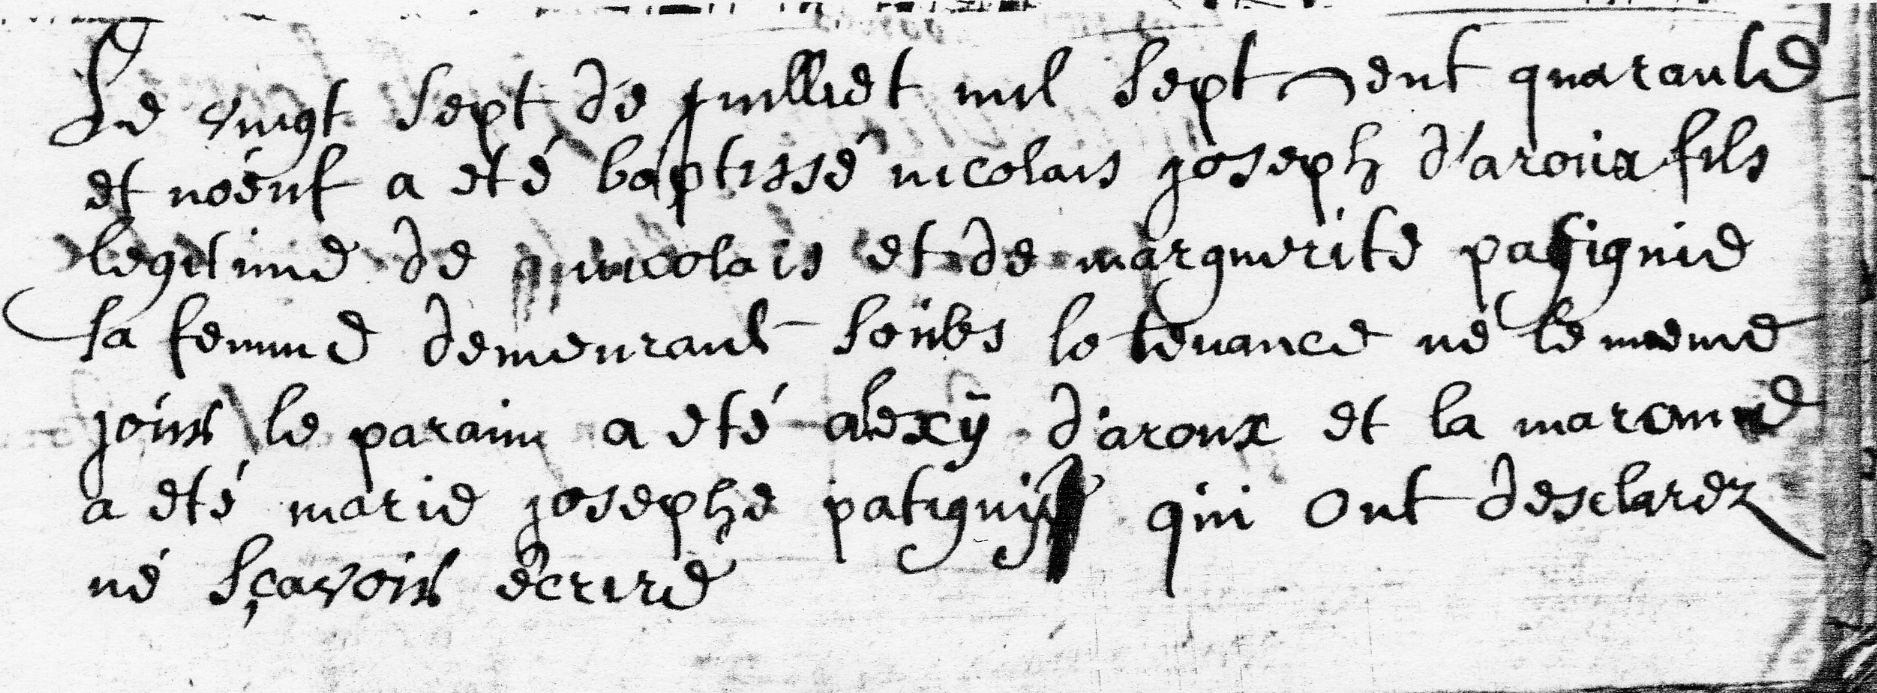 Le vingt sept de juilliet mil sept cent quarante
et noeuf a eté baptissé nicolais joseph d'aroux fils
legitime de nicolais et de marguerite patignie
sa femme demeurant soubs lo tenance né le meme
jour le parain a eté alexÿ d'aroux et la maraine
a eté marie josephe patigny qui ont desclarez
né sçavoir écrire